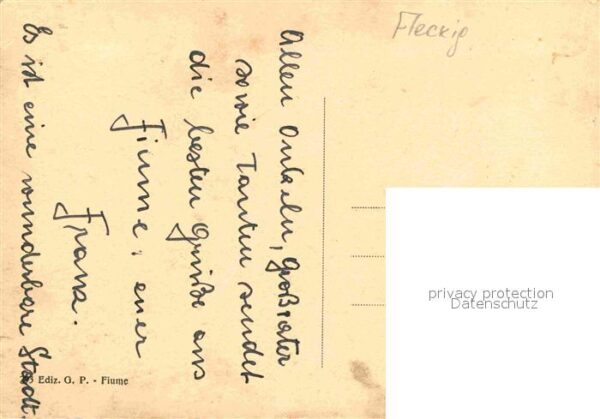 Fleckig
Allen Onkeln, Großvater
sowie Tanten sendet
die besten Grüße aus
Fiume. euer
Franz.
Es ist eine wunderbare Stadt.
3 Ediz. G. P. - Fiume
privacy protection
Datenschutz